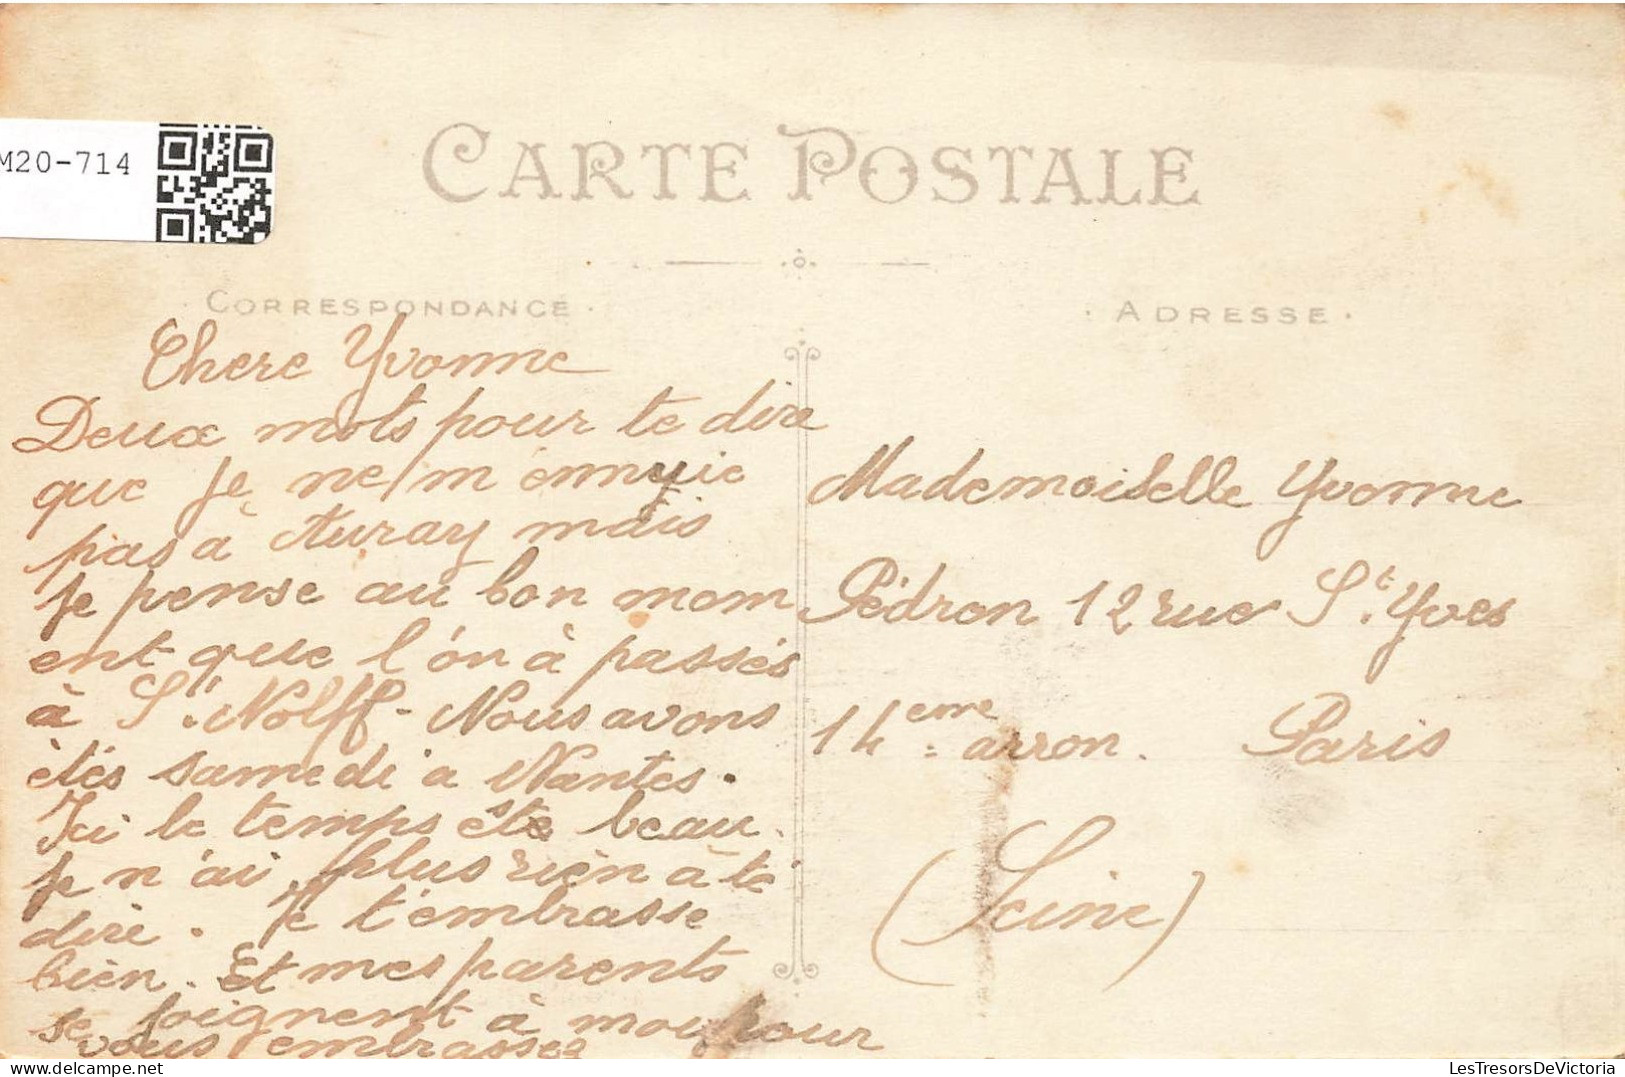 M20-714
CARTE POSTALE
CORRESPONDANCE
ADRESSE
Chere Yvonne
Deux mots pour te dire
que je ne m'ennuyie
pas à Auray mais
je pense au bon mom
ent que l'on à passés
à St. Nolff - Nous avons
étés samedi a Nantes.
Ici le temps est beau.
Je n'ai plus rien a te
dire. Je t'embrasse
bien. Et mes parents
se joignent à moi pour
vous embrasser
Mademoiselle Yvonne
Pédron 12 rue St. Yves
14eme arron. Paris
(Seine)
LesTresorsDeVictoria